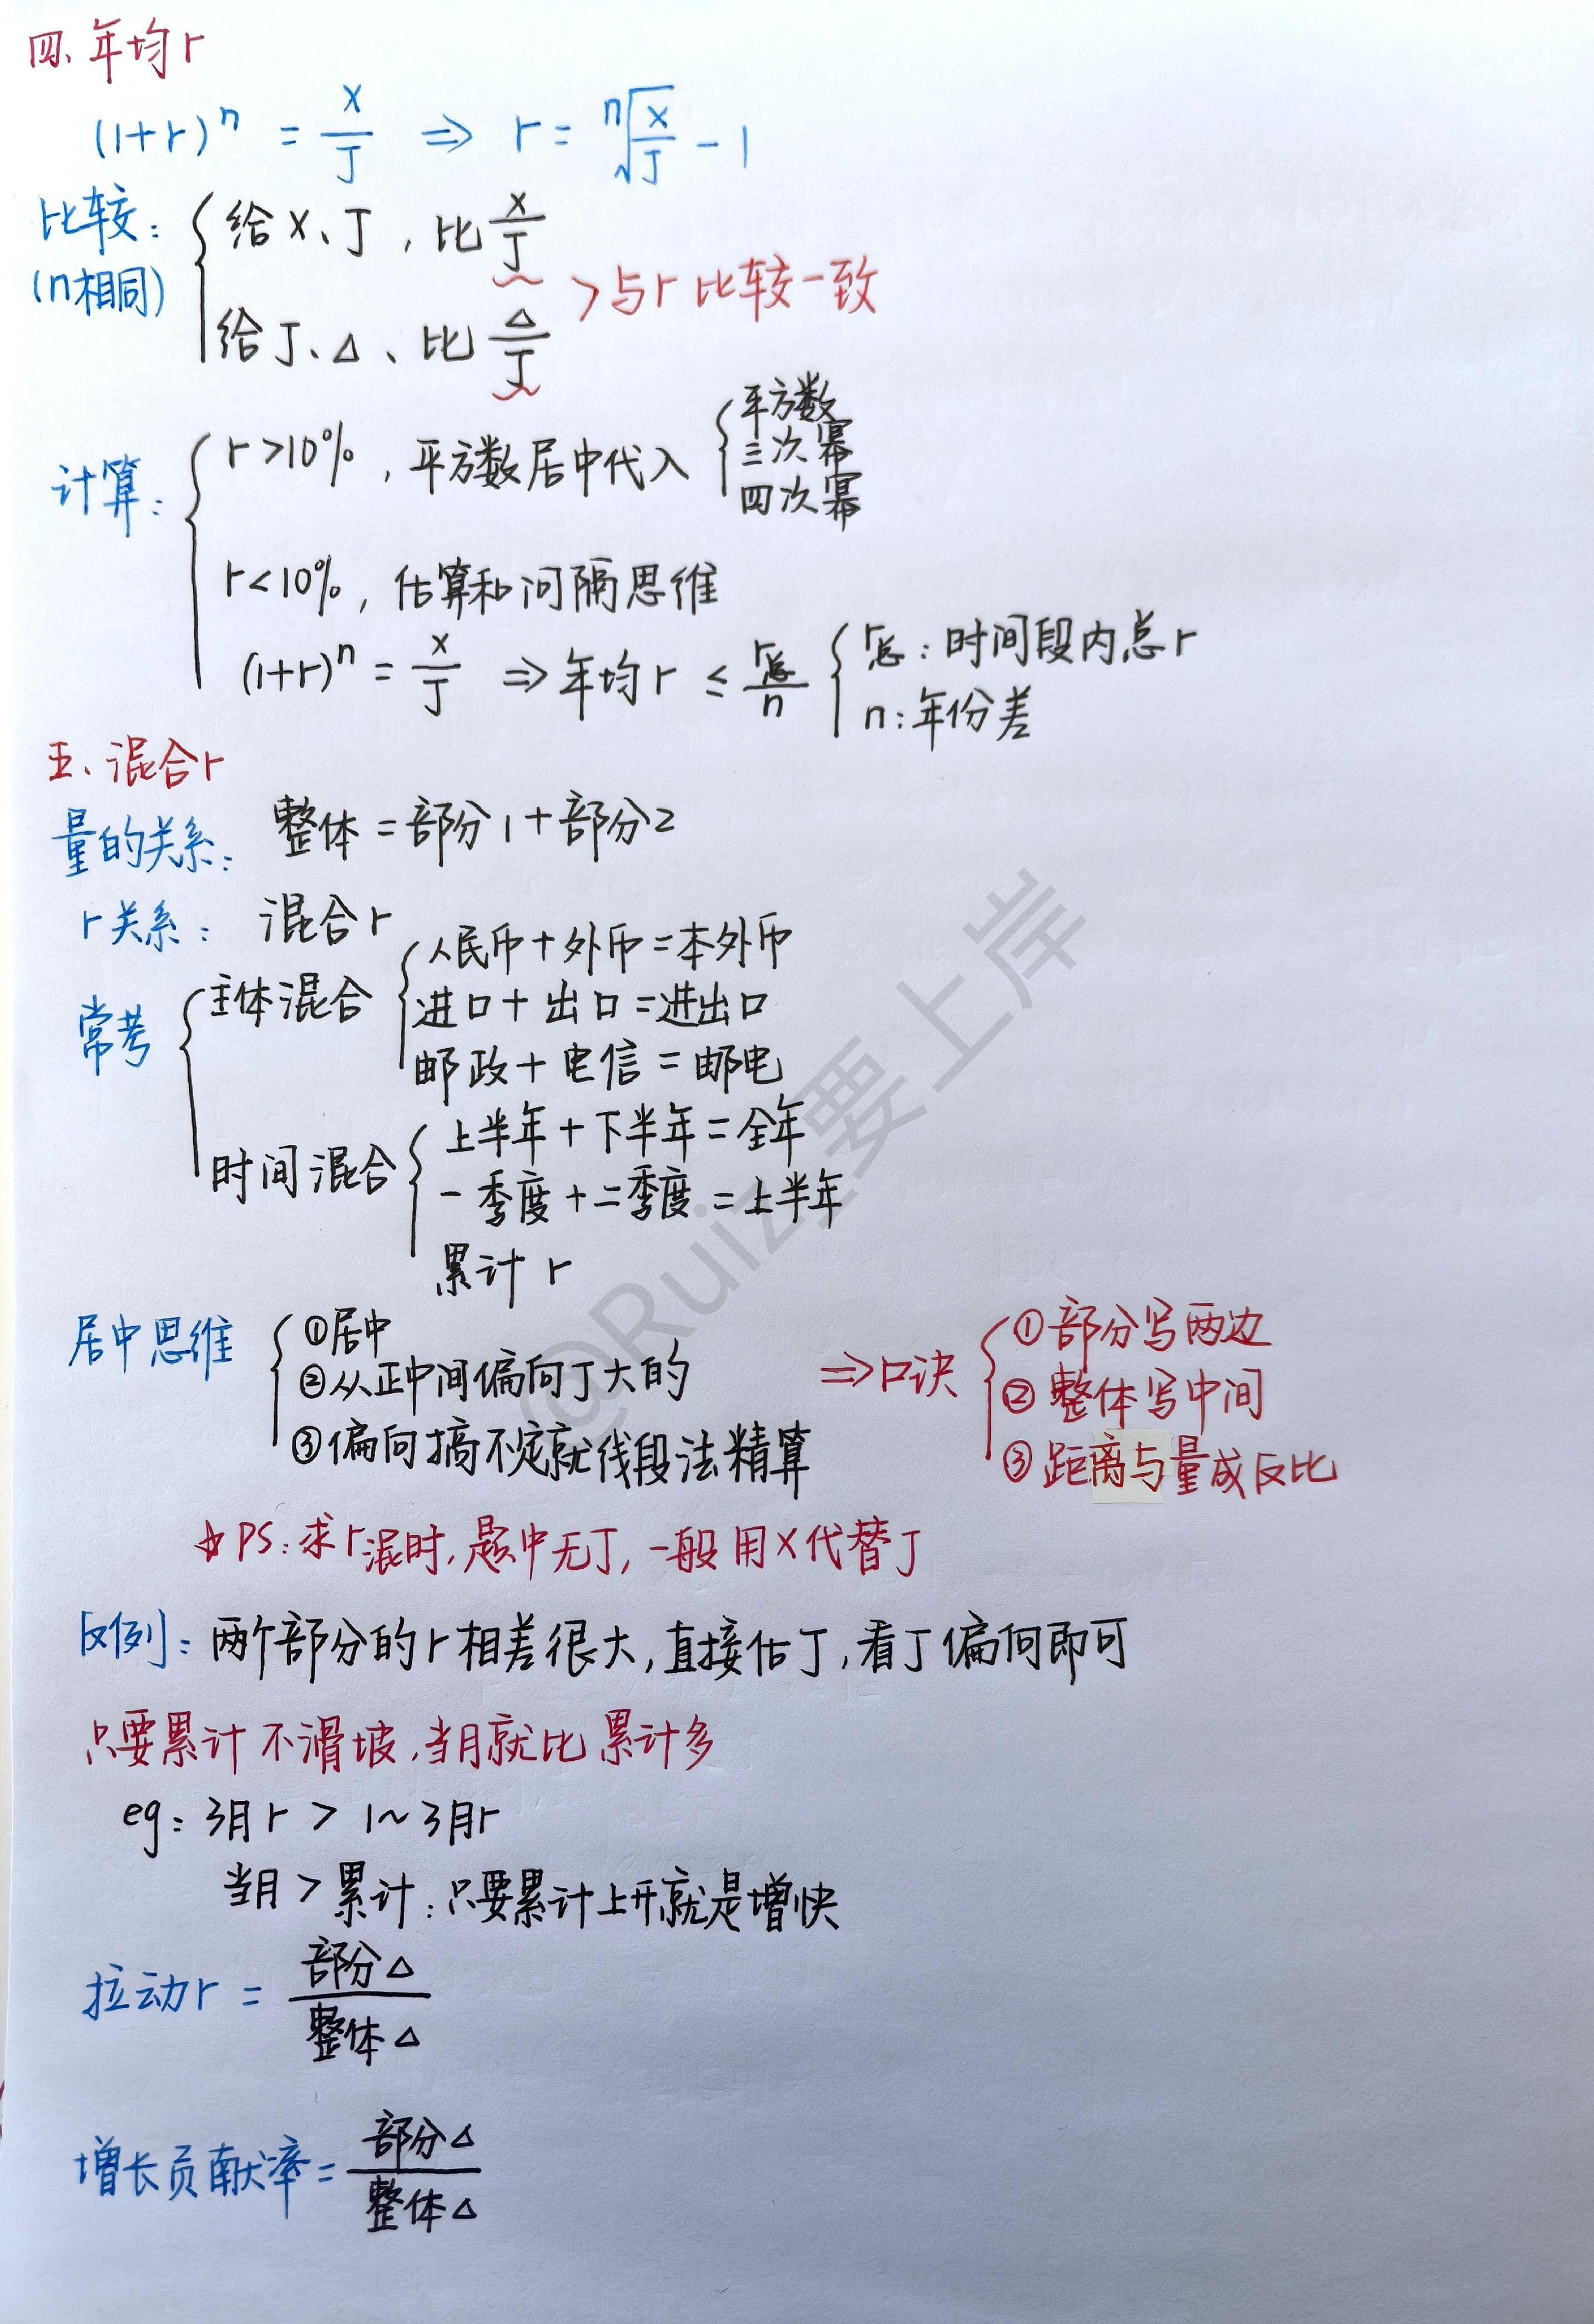 四、年均r
(1+r)ⁿ = X/J ⇒ r = ⁿ√(X/J) - 1
比较：
(n相同)
给X、J，比 X/J
给J、△、比 △/J
>与r比较一致
计算：
r>10%，平方数居中代入
平方数
三次幂
四次幂
r<10%，估算和间隔思维
(1+r)ⁿ = X/J ⇒ 年均r ≤ r总/n
r总：时间段内总r
n：年份差
五、混合r
量的关系： 整体=部分1+部分2
r关系： 混合r
常考
主体混合
人民币+外币=本外币
进口+出口=进出口
邮政+电信=邮电
时间混合
上半年+下半年=全年
一季度+二季度=上半年
累计r
居中思维
①居中
②从正中间偏向J大的
③偏向搞不定就线段法精算
⇒口诀
①部分写两边
②整体写中间
③距离与量成反比
☆PS：求r混时，题中无J，一般用X代替J
反例：两个部分的r相差很大，直接估J，看J偏向即可
只要累计不滑坡，当月就比累计多
eg：3月r > 1~3月r
当月>累计：只要累计上升就是增快
拉动r = 部分△/整体△
增长贡献率 = 部分△/整体△
@Ruiz要上岸